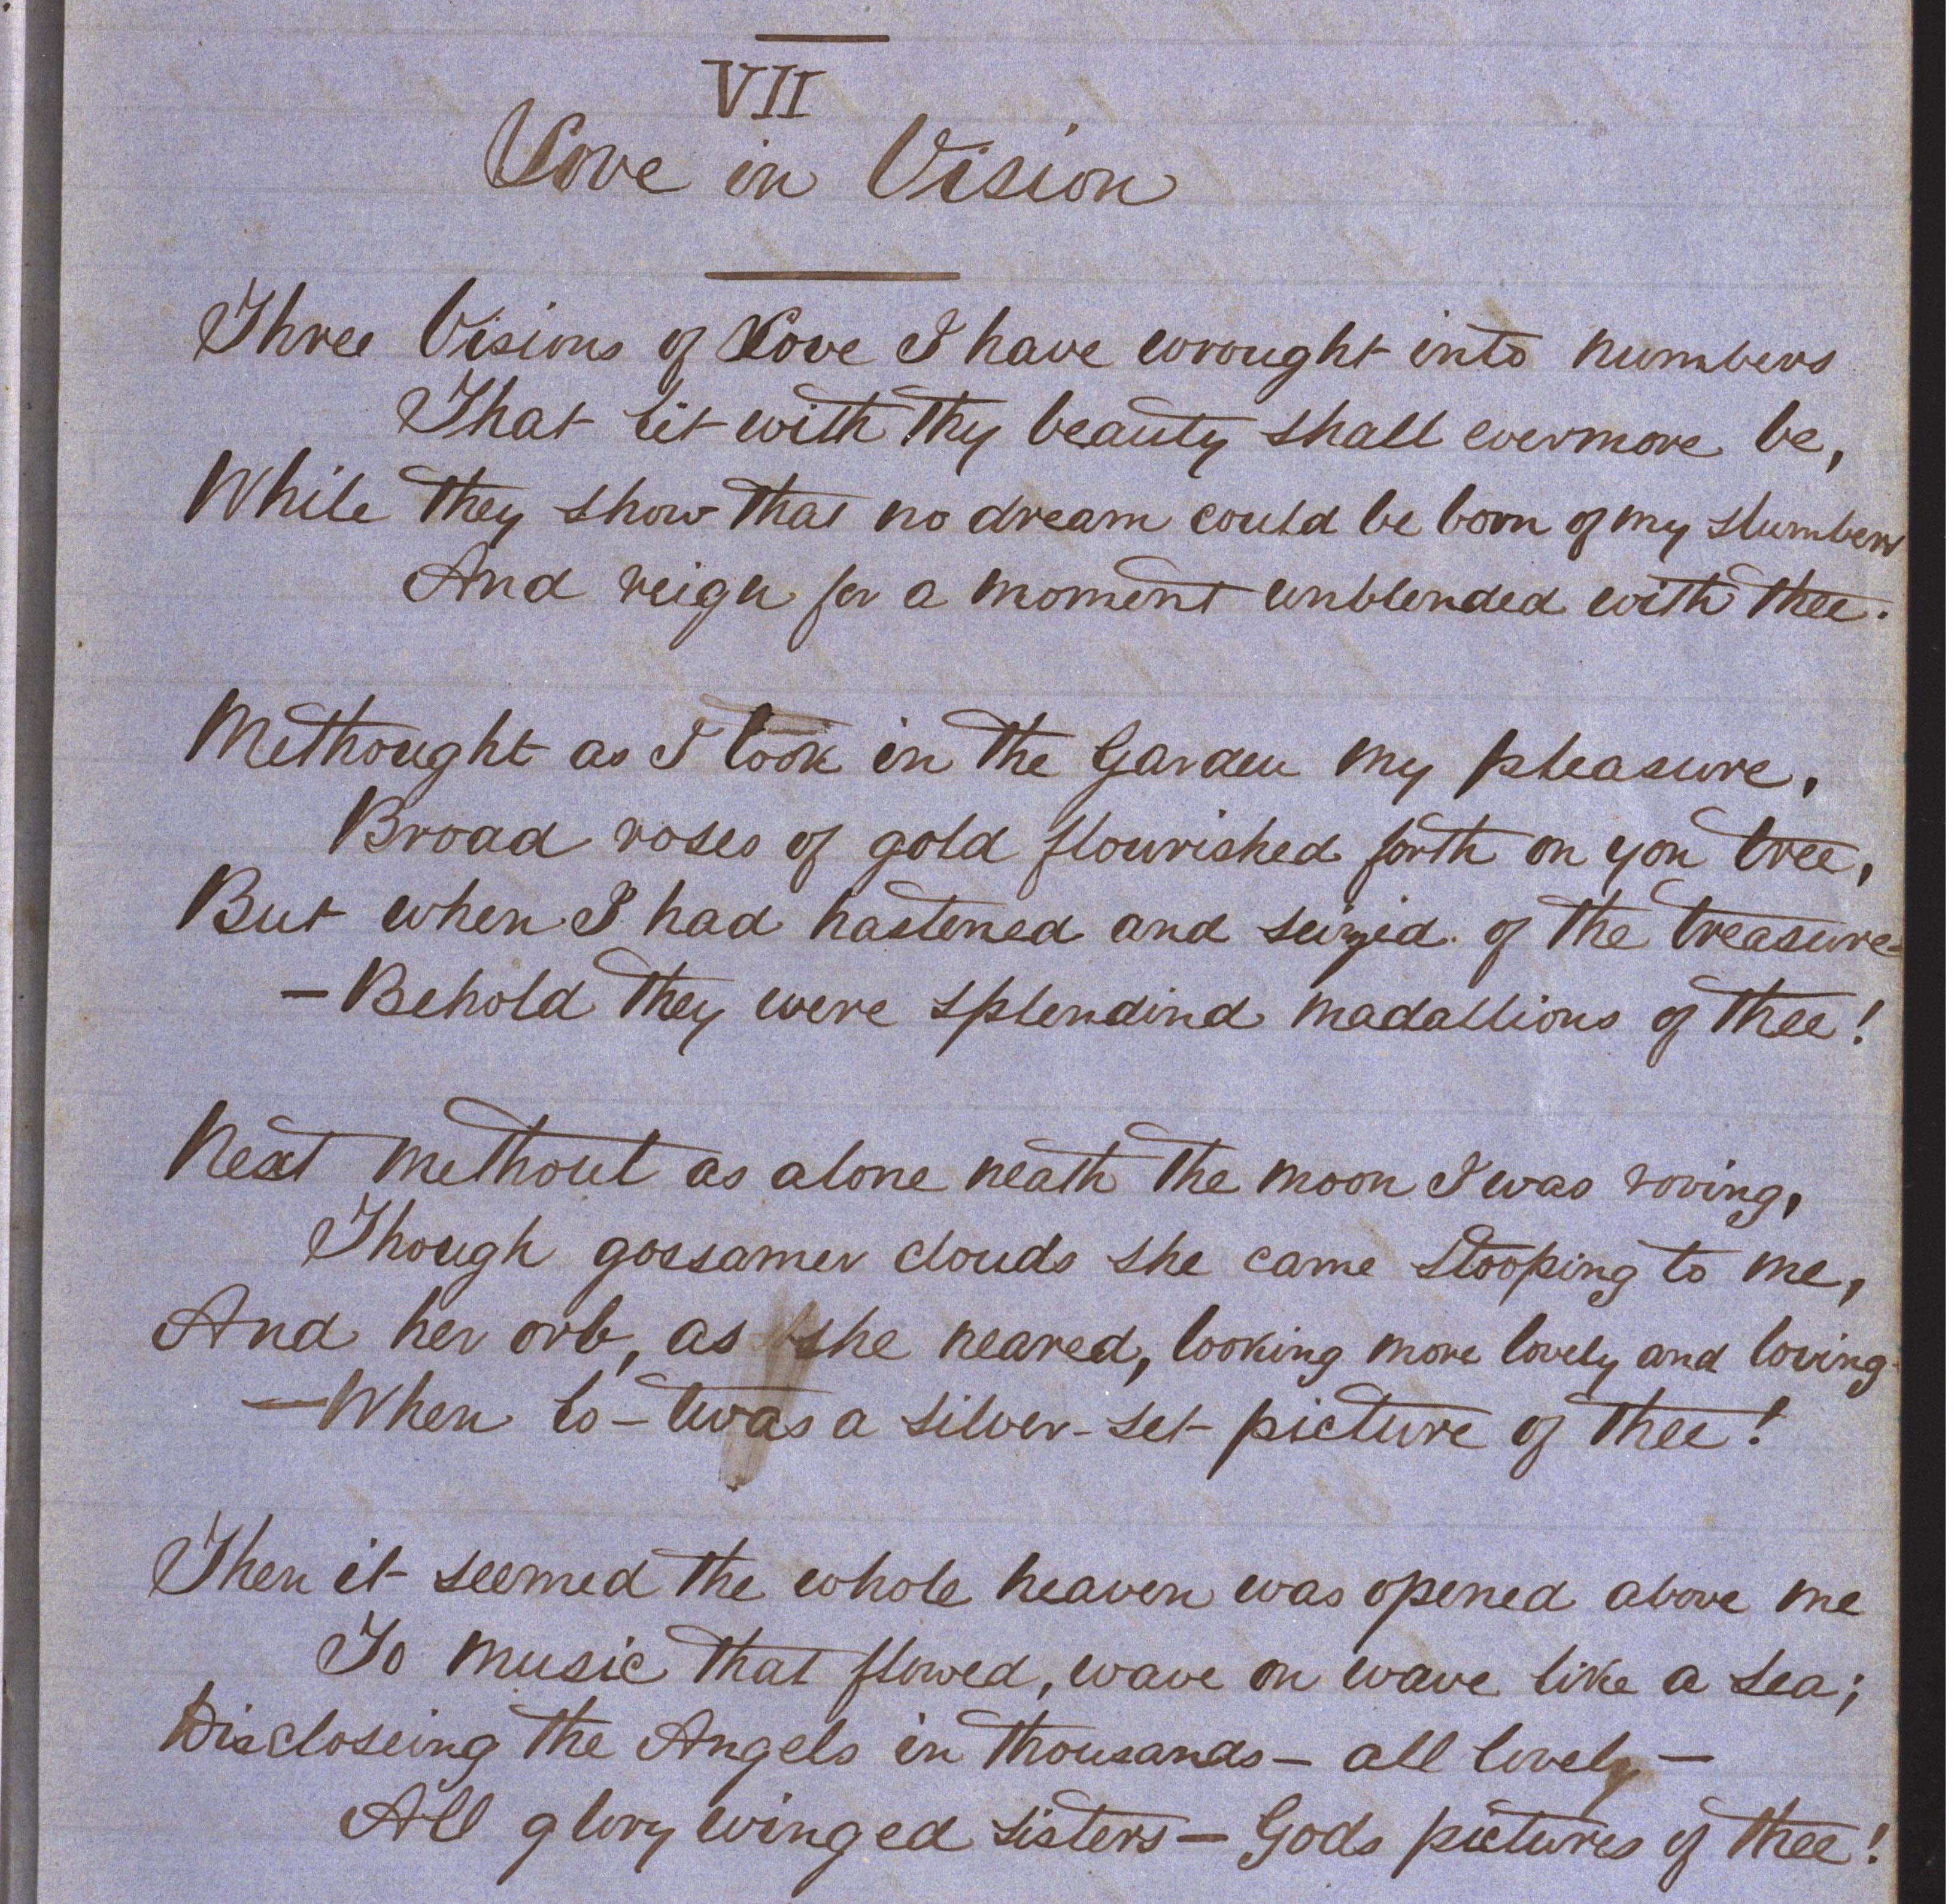 VII
Love in Vision
Three Visions of Love I have wrought into numbers
That lit with thy beauty shall evermore be,
While they show that no dream could be born of my slumbers
And reign for a moment unblended with thee.
Methought as I took in the Garden my pleasure,
Broad roses of gold flourished forth on yon tree,
But when I had hastened and seizid of the treasure—
— Behold they were splendind madallions of thee!
Next methout as alone neath the moon I was roving,
Though gossamer clouds she came stooping to me,
And her orb, as she neared, looking more lovely and loving—
— When lo – twas a silver-set picture of thee!
Then it seemed the whole heaven was opened above me
To music that flowed, wave on wave like a sea;
Discloseing the Angels in thousands — all lovely —
All glory winged sisters — Gods pictures of thee!